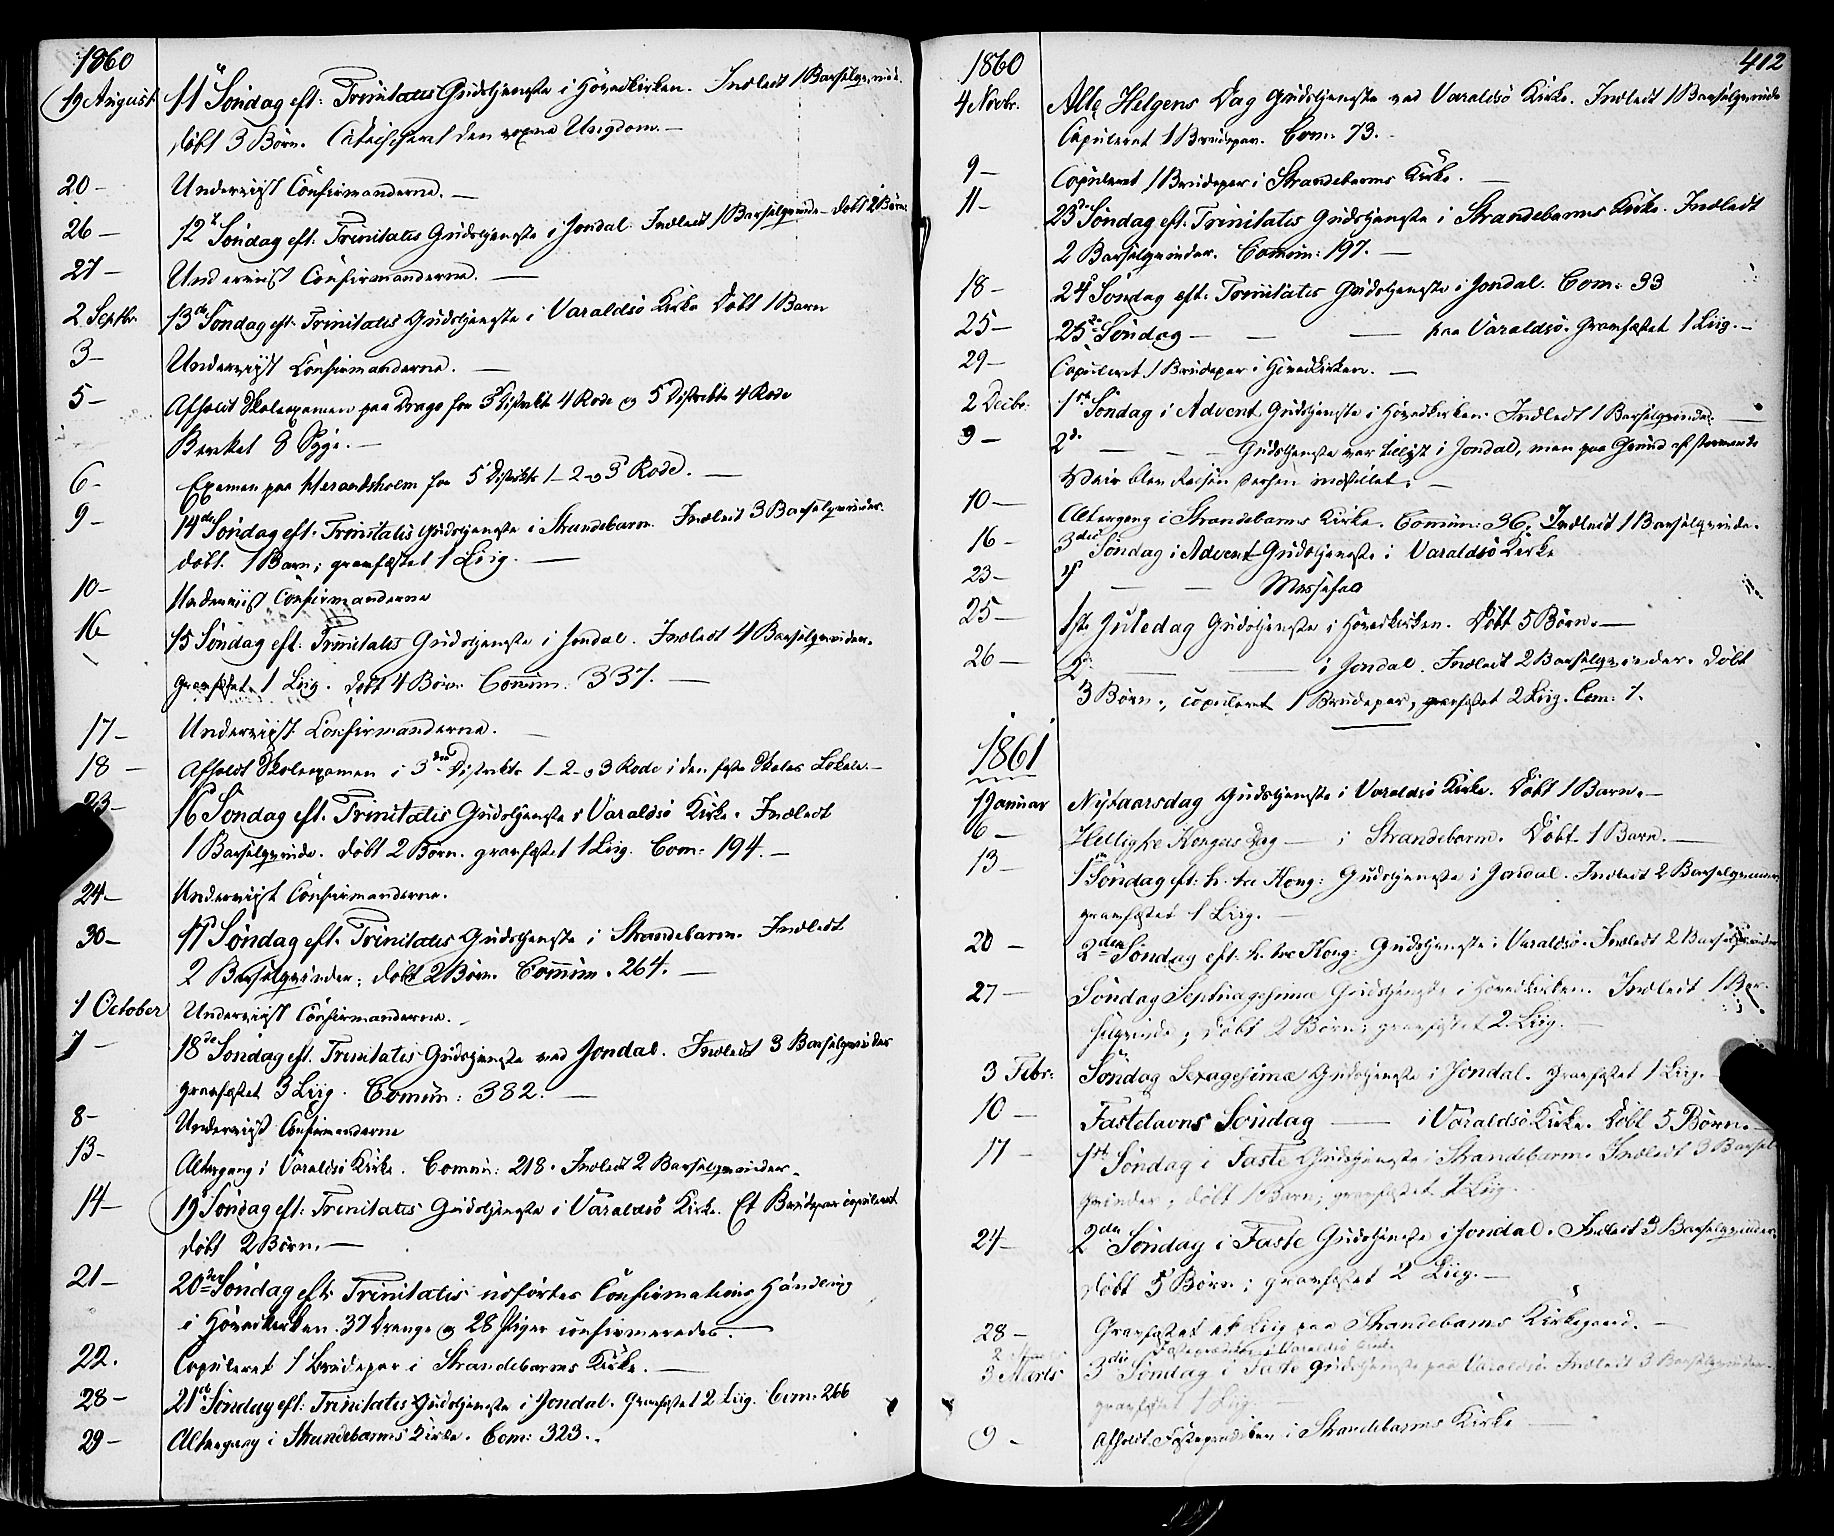 1860
19 August 11te Søndag eft: Trinitatis Gudstjeneste i Hovedkirken. Indledt 1 Barselqvinde.
døbt 3 Børn. Catechiseret den voxne Ungdom.—
20— Underviist Confirmanderne.—
26— 12te Søndag eft. Trinitatis Gudstjeneste i Jondal. Indledt 1 Barselqvinde— døbt 2 Børn.
27— Underviist Confirmanderne.—
2 Septbr. 13de Søndag eft. Trinitatis Gudstjeneste i Varaldsø Kirke Døbt 1 Barn
3— Underviist Confirmanderne.—
5— Afholdt Skoleexamen paa Drage for 3 Distrikts 4 Rode og 5 Distrikts 4 Rode
8 Syge.—
6— Examen paa Herandsholm for 5 Distrikts 1— 2 og 3 Rode.—
9— 14de Søndag eft. Trinitatis Gudstjeneste i Strandebarm. Indledt 3 Barselqvinder.
døbt. 1 Barn; gravfæstet 1 Liig.—
10— Underviist Confirmanderne
16 15 Søndag eft: Trinitatis Gudstjeneste i Jondal. Indledt 4 Barselqvinder.
gravfæstet 1 Liig. døbt 4 Børn Commun: 337.—
17— Underviist Confirmanderne.—
18— Afholdt Skoleexamen i 3die Distrikts 1— 2— og 3 Rode i den faste Skoles Lokale.—
23— 16 Søndag eft. Trinitatis Gudstjeneste i Varaldsø Kirke. Indledt
1 Barselqvinde. døbt 2 Børn. gravfæstet 1 Liig. Com: 194.—
24— Underviist Confirmanderne.
30— 17 Søndag eft. Trinitatis Gudstjeneste i Strandebarm. Indledt
2 Barselqvinder; døbt 2 Børn. Commun. 264.—
1 October Underviist Confirmanderne.
7— 18de Søndag eft. Trinitatis Gudstjeneste ved Jondal. Indledt 3 Barselqvinder
gravfæstet 3 Liig. Comun: 382.—
8— Underviist Confirmanderne
13— Altergang i Varaldsø Kirke. Commun: 218. Indledt 2 Barselqvinder.
14— 19 Søndag eft: Trinitatis Gudstjeneste i Varaldsø Kirke. Et Brudepar copuleret
døbt 2 Børn.—
21— 20de Søndag eft. Trinitatis udførtes Confirmations Handling
i Hovedkirken. 37 Drenge og 28 Piger confirmeredes.—
22. Copuleret 1 Brudepar i Strandebarms Kirke.—
28— 21de Søndag eft: Trinitatis Gudstjeneste i Jondal. Gravfæstet 2 Liig. Com: 266
29— Altergang i Strandebarms Kirke. Com: 323.
1860 412
4 Novbr. Alle Helgens Dag Gudstjeneste ved Varaldsø Kirke. Indledt 1 Barselqvinde
Copuleret 1 Brudepar. Com. 73.
9— Copuleret 1 Brudepar i Strandebarms Kirke.—
11— 23de Søndag eft. Trinitatis Gudstjeneste i Strandebarms Kirke. Indledt
2 Barselqvinder. Commun: 197.—
18— 24 Søndag eft. Trinitatis Gudstjeneste i Jondal. Com: 33
25— 25de Søndag — — — paa Varaldsø. Gravfæstet 1 Liig.—
29— Copuleret 1 Brudepar i Hovedkirken.—
2 Decbr. 1ste Søndag i Advent Gudstjeneste i Hovedkirken. Indledt 1 Barselqvinde.—
9— 2d. — — — Gudstjeneste var tillyst i Jondal, men paa Grund af stormende
Veir blev Reisen dersen indstillet.—
10— Altergang i Strandebarms Kirke. Comun: 36. Indledt 1 Barselqvinde.
16— 3die Søndag i Advent Gudstjeneste i Varaldsø Kirke
23— 4 — — Messefald
25— 1ste Juledag Gudstjeneste i Hovedkirken. Døbt 5 Børn.—
26— 2d. — — i Jondal. Indledt 2 Barselqvinder. døbt
3 Børn., copuleret 1 Brudepar, gravfæstet 2 Liig. Com: 7.
1861
1 Januar Nytaarsdag Gudstjeneste i Varaldsø Kirke. Døbt 1 Barn.—
6— Hellig tre Kongers Dag — i Strandebarm. Døbt 1 Barn.—
13— 1ste Søndag eft: h. tre Kong: Gudstjeneste i Jondal. Indledt 2 Barselqvinder
gravfæstet 1 Liig.—
20— 2den Søndag eft. h. tre Kong: Gudstjeneste i Varaldsø. Indledt 2 Barselqvinder
27— Søndag Septuagesima Gudstjeneste i Hovedkirken. Indledt 1 Bar-
selqvinde; døbt 2 Børn; gravfæstet 2 Liig.—
3 Febr: Søndag Sexagesima Gudstjeneste i Jondal. Gravfæstet 1 Liig.
10— Fastelavns Søndag — i Varaldsø Kirke. Døbt 5 Børn.—
17— 1ste Søndag i Faste Gudstjeneste i Strandebarm. Indledt 3 Barsel-
qvinder; døbt 1 Barn; gravfæstet 1 Liig.
24— 2den Søndag i Faste Gudstjeneste i Jondal. Indledt 3 Barselqvinder.
døbt 5 Børn; gravfæstet 2 Liig.—
28— Gravfæstet et Liig paa Strandebarms Kirkegaard.—
2 Fasteprædiken i Varaldsø Kirke
3 Marts 3die Søndag i Faste Gudstjeneste paa Varaldsø. Indledt 3 Barselqvinder.
gravfæstet 1 Liig.—
9— Afholdt Fasteprædiken i Strandebarms Kirke—